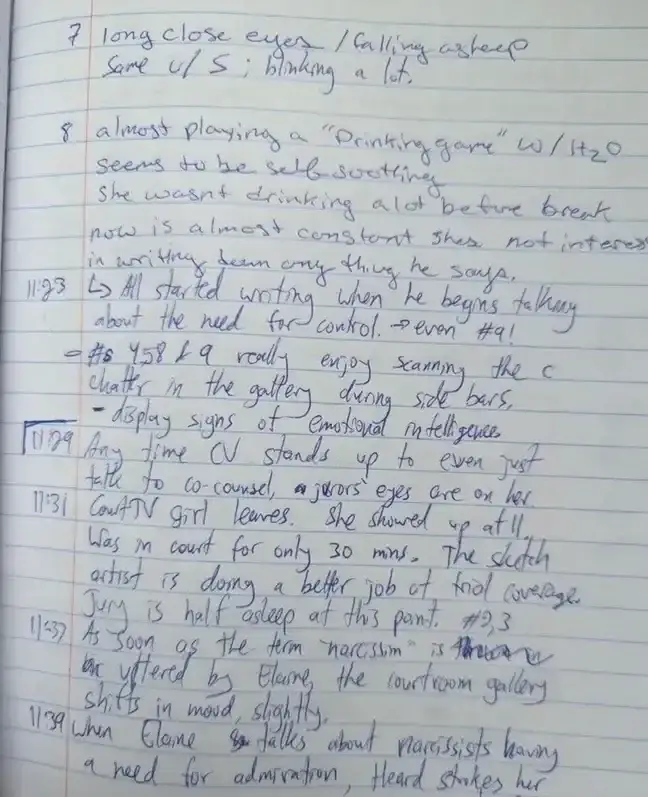 7 long close eyes / falling asleep
Same w/ 5 ; blinking a lot.
8 almost playing a "Drinking game" w/ H2O
seems to be self sootting
She wasnt drinking a lot before break
now is almost constant shes not interes
in writing down any thing he says.
11:23 ↳ All started writing when he begins talking
about the need for control. → even #9!
- #s 4,5,8 & 9 really enjoy scanning the c
chatter in the gallery during side bars.
- display signs of emotional intelligence
11:29 Any time CV stands up to even just
talk to co-counsel, jurors' eyes are on her
11:31 CourtTV girl leaves. She showed up at 11.
Was in court for only 30 mins. The sketch
artist is doing a better job at trial coverage.
Jury is half asleep at this point. #2,3
11:37 As soon as the term "narcissim" is
uttered by Elaine, the courtroom gallery
shifts in mood, slightly.
11:39 When Elaine talks about narcissists having
a need for admiration, Heard strokes her